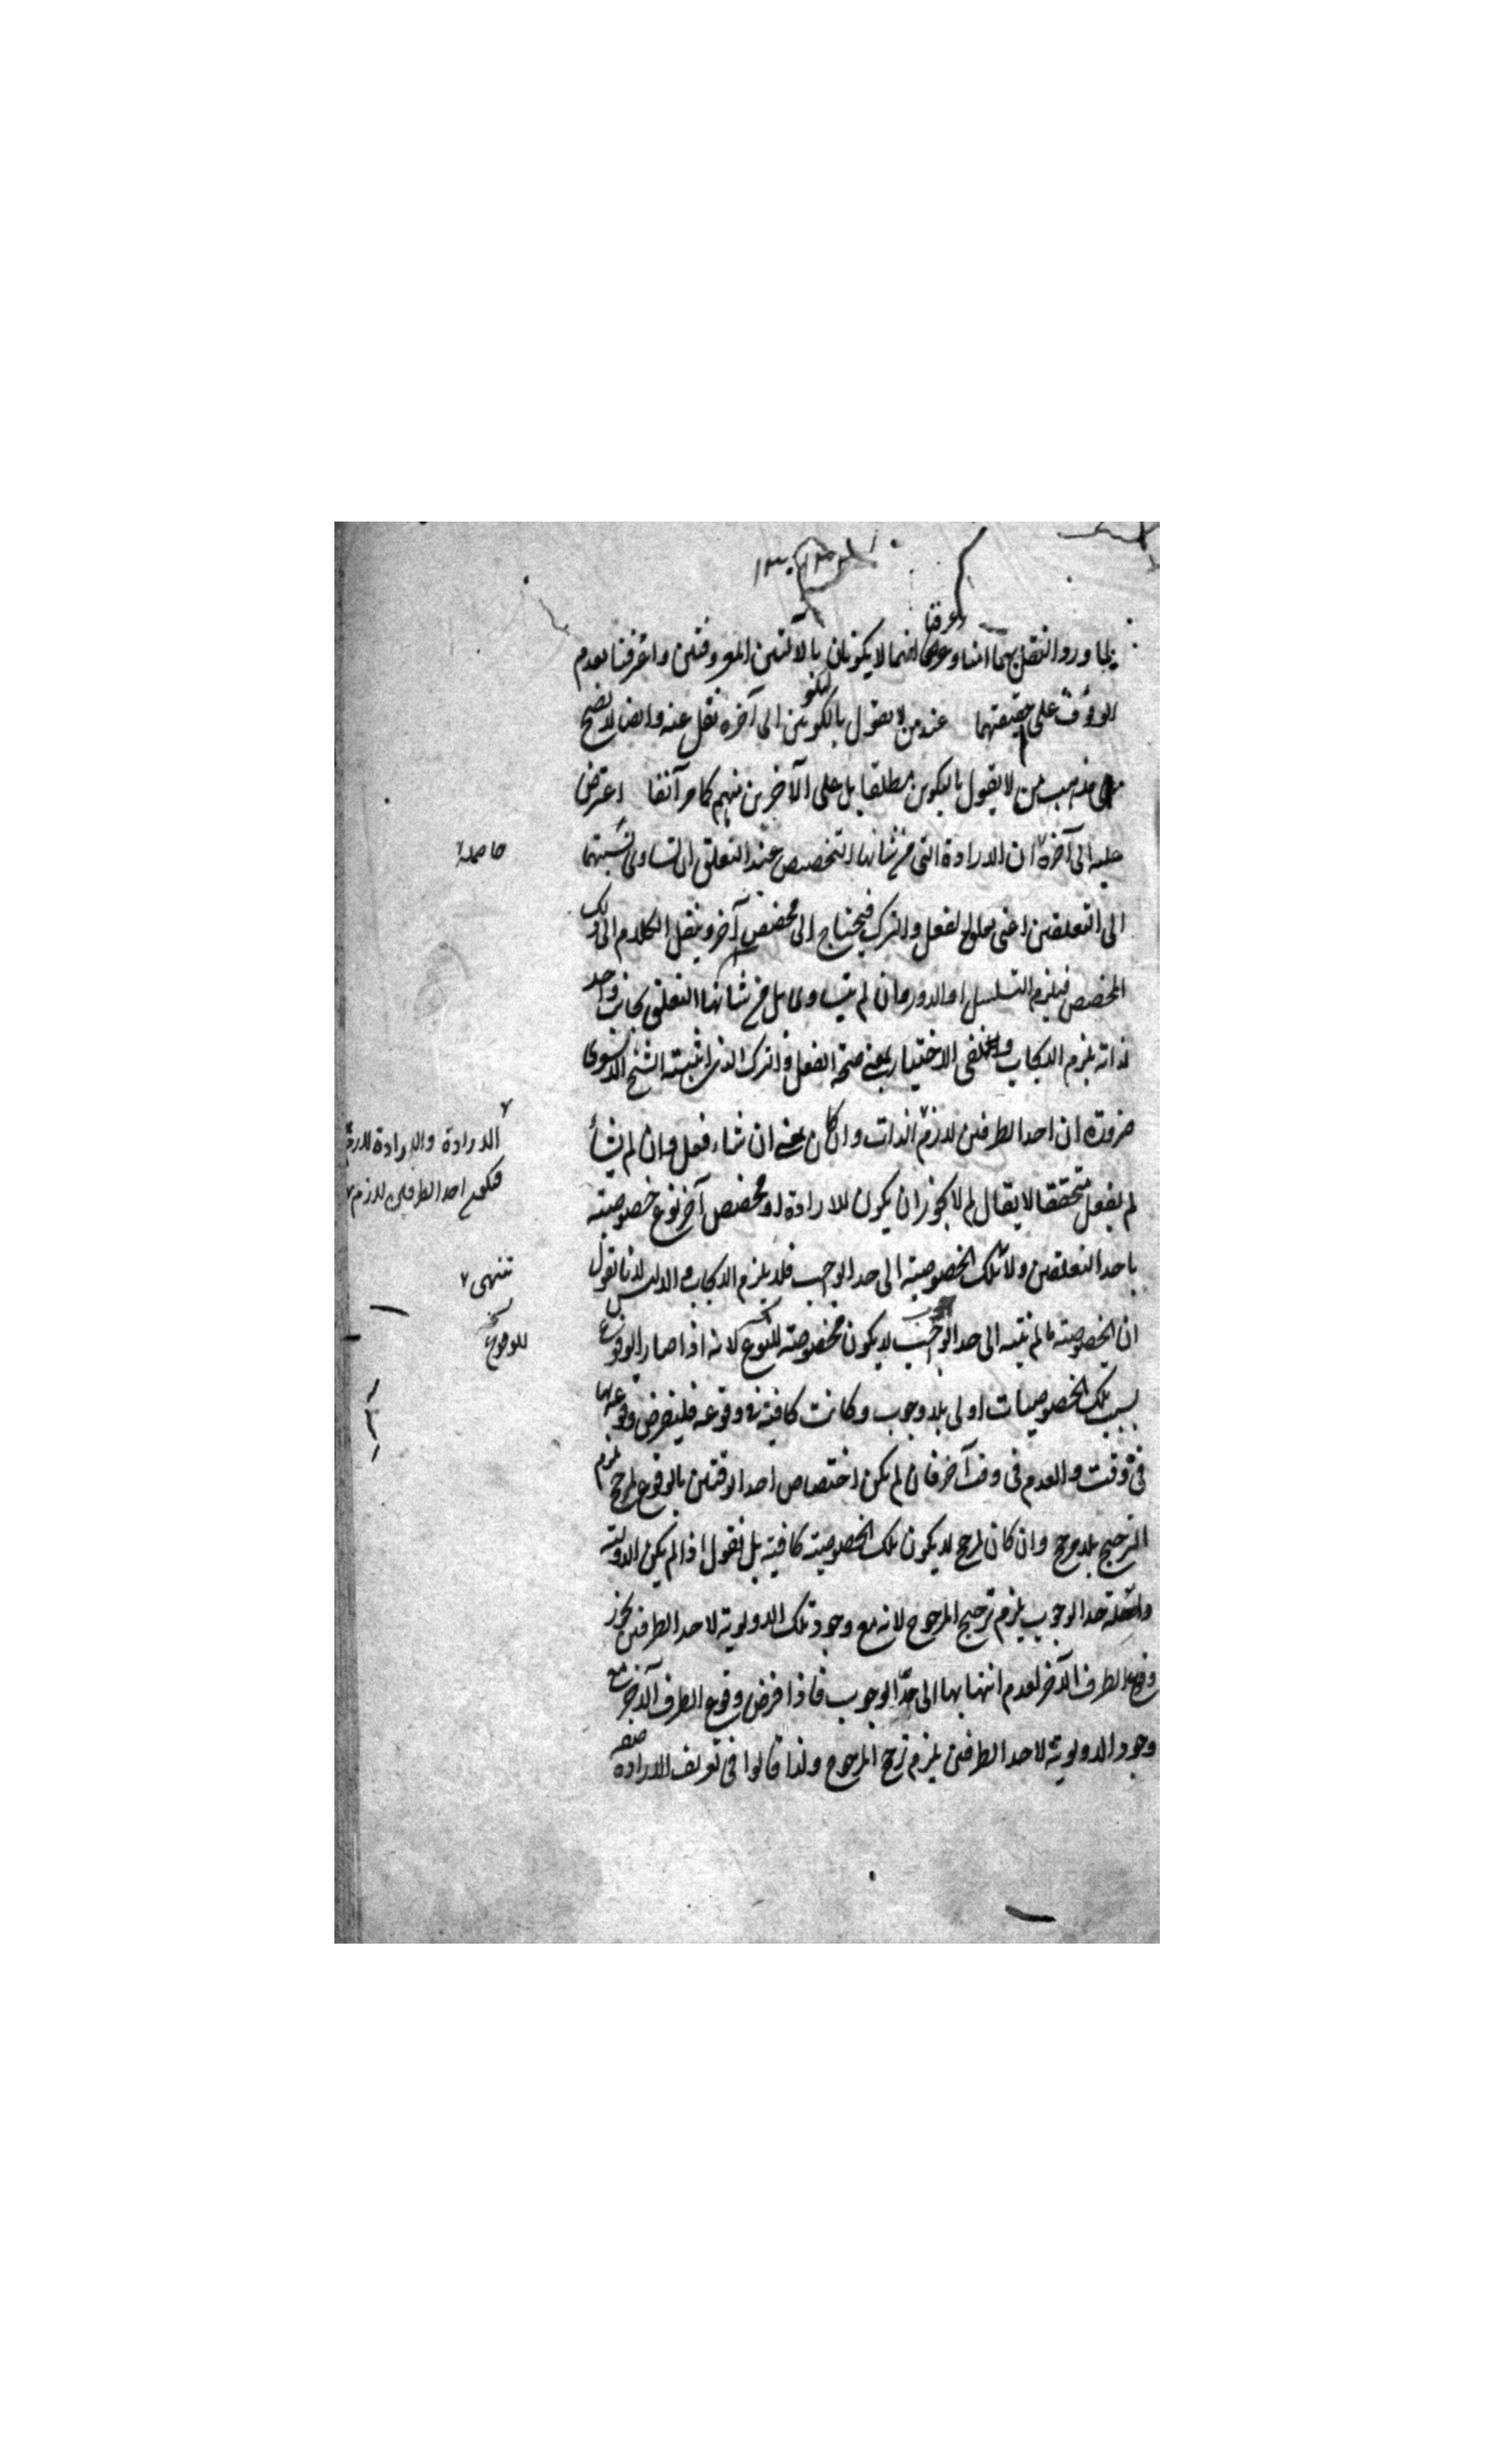 لما ورد النقل بهما امنا وعرفنا انهما لا يكونان بالآلتين المعروفتين واعترفنا بعدم
الوقوف على حقيقتهما عند من لا يقول بالتكوين الى آخره نقل عنه وايضا لا يصح
على مذهب من لا يقول بالتكوين مطلقا بل على الآخرين منهم كما مر آنفا اعترض
عليه الى آخره ان الارادة التي من شانها التخصيص عند التعلق ان تساوى نسبتهما
حاصله
الى التعلقين اعنى الفعل والترك فيحتاج الى مخصص آخر وينقل الكلام الى ذلك
المخصص فيلزم التسلسل او الدور وان لم يتساوى بل من شانها التعلق بجانب واحد
لذاته يلزم الايجاب وينفى الاختيار بمعنى صحة الفعل والترك الذى اثبته الشيخ الاشعرى
ضرورة ان احد الطرفين لازم الذات وان كان بمعنى ان شاء فعل وان لم يشأ
الارادة والارادة لازم
فيكون احد الطرفين لازم
لم يفعل متحققا لا يقال لم لا يجوز ان يكون للارادة او مخصص آخر نوع خصوصية
باحد التعلقين ولا تلك الخصوصية الى حد الوجوب فلا يلزم الايجاب والدليل لانا نقول
تنتهى
ان الخصوصية ما لم ينته الى حد الوجوب لا يكون مخصوصة للوقوع لانه اذا صار الوقوع
للوقوع
بسبب تلك الخصوصيات اولى بلا وجوب وكانت كافية فى وقوعه فليفرض وقوعه بها
فى وقت والعدم فى وقت آخر فان لم يكن اختصاص احد الوقتين بالوقوع لمرجح يلزم
الترجيح بلا مرجح وان كان لمرجح لا يكون تلك الخصوصية كافية بل نقول اذا لم يكن الاولوية
واصلة حد الوجوب يلزم ترجيح المرجوح لانه مع وجود تلك الاولوية لاحد الطرفين يجوز
وقوع الطرف الآخر لعدم انتهائها الى حد الوجوب فاذا فرض وقوع الطرف الآخر مع
وجود الاولوية لاحد الطرفين يلزم ترجح المرجوح ولذا قالوا فى تعريف الارادة صفة